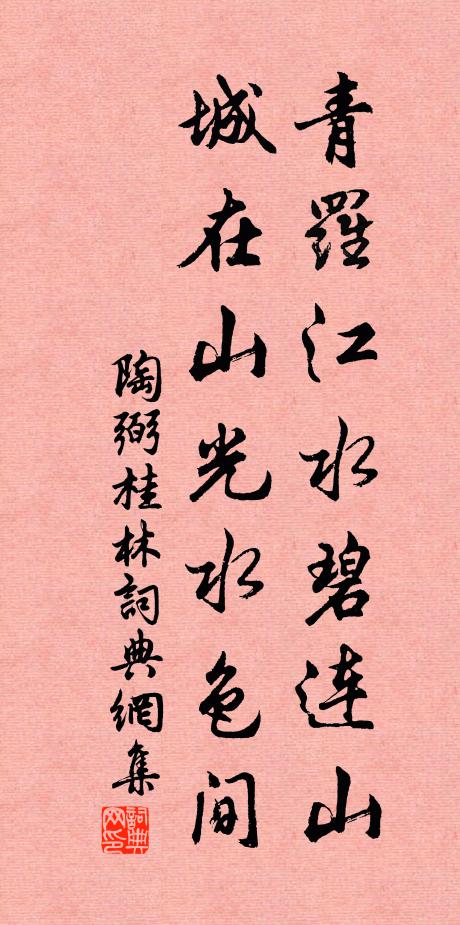 青羅江水碧連山
城在山光水色間
陶弼桂林詞典網集
詞典
网印